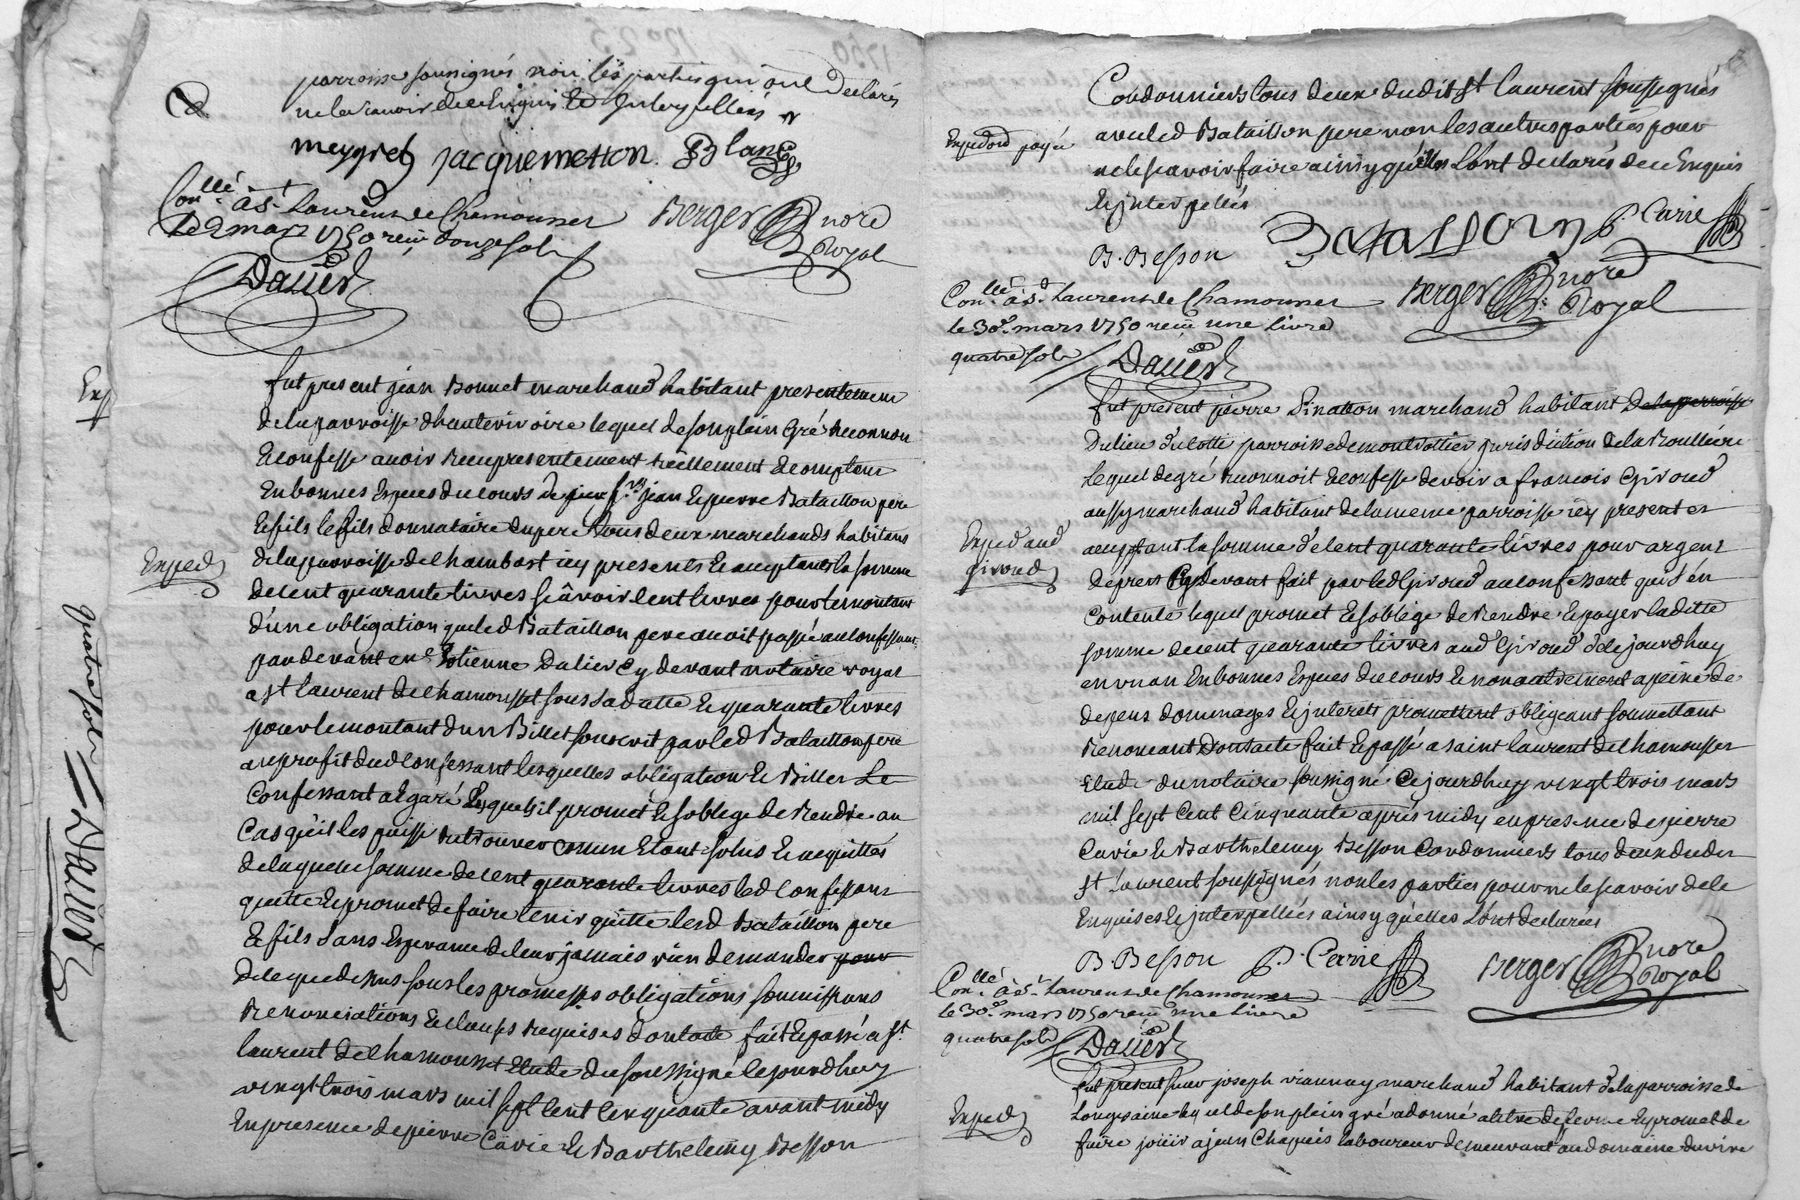 parroisse soussignés non les parties qui ont declarés
ne le scavoir de ce Enquis Et Interpellés
meygret jacquemetton Blanc
Conllé à St Laurens de Chamousset
le 2 mars 1750 reçu douze sols
Berger nore
Royal
Dauier
fut present jean Bonnet marchand habitant presentement
de la parroisse dhauterivoire lequel de son plein gré reconnon
Et confesse avoir reçu presentement réellement Et comptem
En bonnes Especes du cours de jean Et pierre Bataillon pere
Et fils le fils donnataire du pere tous deux marchands habitans
de la parroisse de Chambost icy presents Et acceptants la somme
de cent quarante livres scâvoir cent livres pour le montant
d'une obligation que led Bataillon pere avoit passé au confessant
par devant me Etienne Dalier cy devant notaire royal
a St laurent de Chamousset sous sa datte Et quarante livres
pour le montant d'un Billet souscrit par led Bataillon pere
au profit dud confessant lesquelles obligation Et Billet Le
Confessant a Egaré Lesquels il promet Et soblege de Rendre au
Cas qu'il les puisse retrouver comm Etant solus Et acquittés
de laquelle somme de cent quarante livres led Confessant
quitte Et promet de faire tenir quitte lesd Bataillon pere
Et fils sans Esperance de leur jamais rien demander pour
de ce que dessus sous les promesses obligations soumissions
Renonciations Et clauses requises dont acte fait Et passé a St
laurent de Chamousset Etude du soussigné Cejourdhuy
vingt trois mars mil sept Cent Cinquante avant midy
En presence de pierre Carie Et Barthelemy Besson
Exped
quatre sols
Dauier
Cordonniers tous deux dudit St laurent soussignés
avec led Bataillon pere non les autres parties pour
ne le scavoir faire ainsy qu'elles L'ont declarés de ce Enquis
Et interpellés
Exped payé
B. Besson Bataillon P. Carie
Conllé à St Laurens de Chamousset
le 30e mars 1750 reçu une livre
quatre sols
Berger nore
Royal
Dauier
fut present pierre Pinatton marchand habitant de la parroisse
Du lieu parroisse de montrottier jurisdiction de la Roullière
Lequel de gré reconnoit Et confesse devoir a francois Giroud
aussy marchand habitant de la meme parroisse icy present et
acceptant la somme de Cent quarante livres pour argent
de prest Cy devant fait par led Giroud au confessant qui s'en
Contente lequel promet Et soblege de Rendre Et payer laditte
somme de cent quarante livres aud Giroud dé cejourdhuy
en un an En bonnes Especes du cours Et non autrement a peine de
depens dommages Et interets promettent obligeant soumettant
Renonceant Dont acte fait Et passé a saint laurent de Chamousset
Etude du notaire soussigné Cejourdhuy vingt trois mars
mil sept Cent Cinquante apres midy en presence de pierre
Carie Et Barthelemy Besson Cordonniers tous deux dudit
St Laurent soussignés non les parties pour ne le scavoir de ce
Enquises Et interpellés ainsy qu'elles L'ont declarées
Exped aud
giroud
B. Besson P. Carie Berger nore
Royal
Conllé à St Laurens de Chamousset
le 30e mars 1750 reçu une livre
quatre sols
Dauier
fut present sieur joseph viannay marchand habitant de la parroisse de
Longesaine lequel de son plein gré a donné a titre de ferme Et promet de
faire jouir a jean Chapuis laboureur demeurant au domaine
Exped